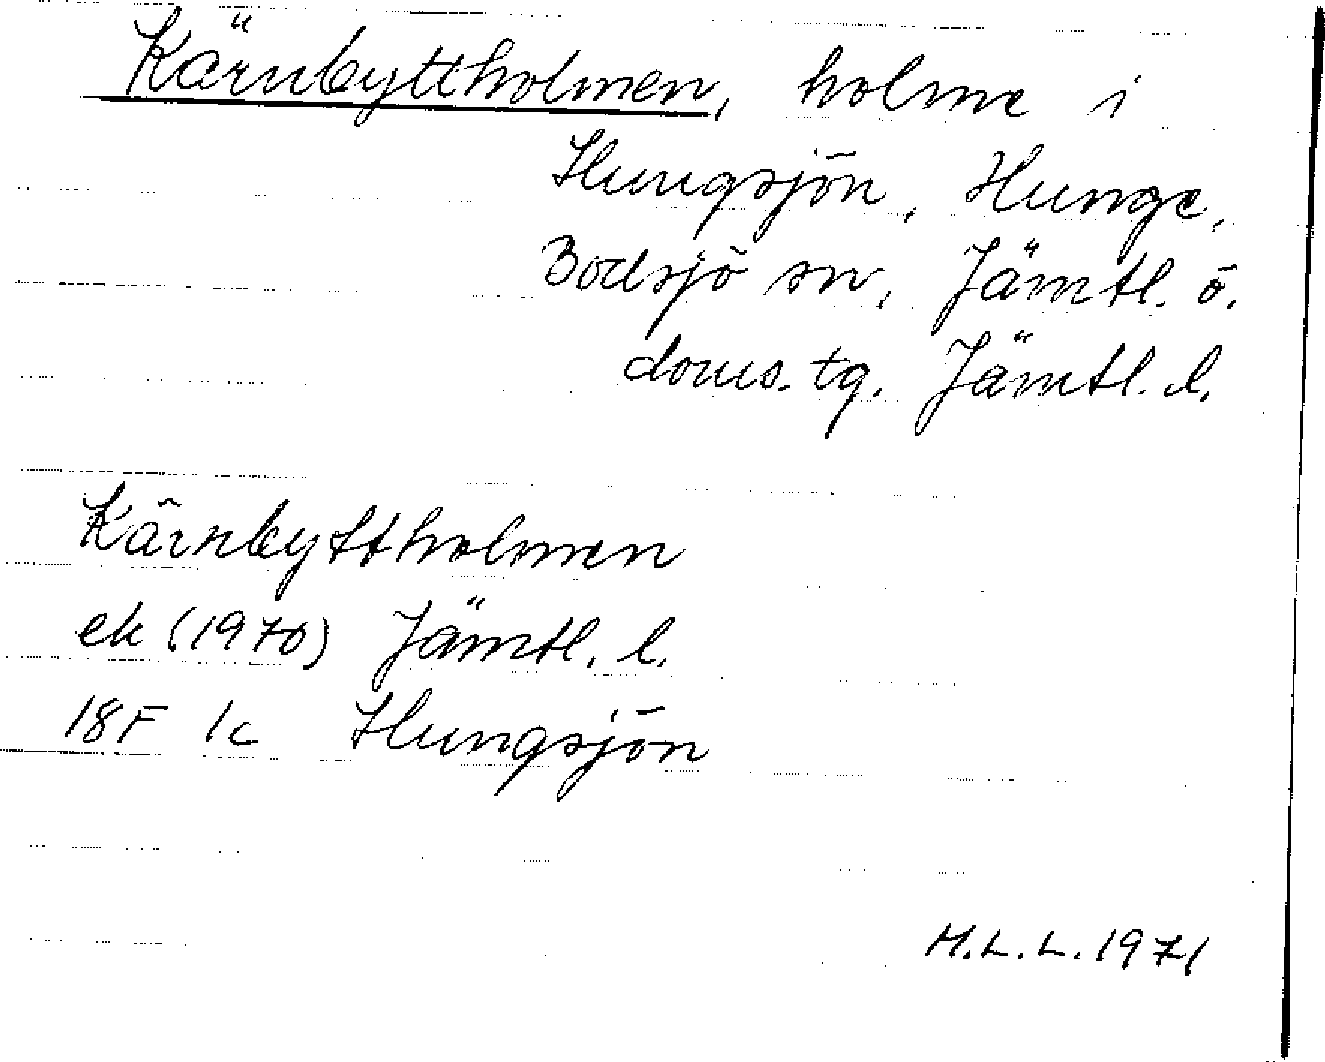 Kärnbyttholmen, holme i
Hungsjön, Hunge,
Bodsjö sn, Jämtl. ö.
doms. tg. Jämtl. l.
Kärnbyttholmen
ek (1970) Jämtl. l.
18F 1c Hungsjön
H.L.L. 1971